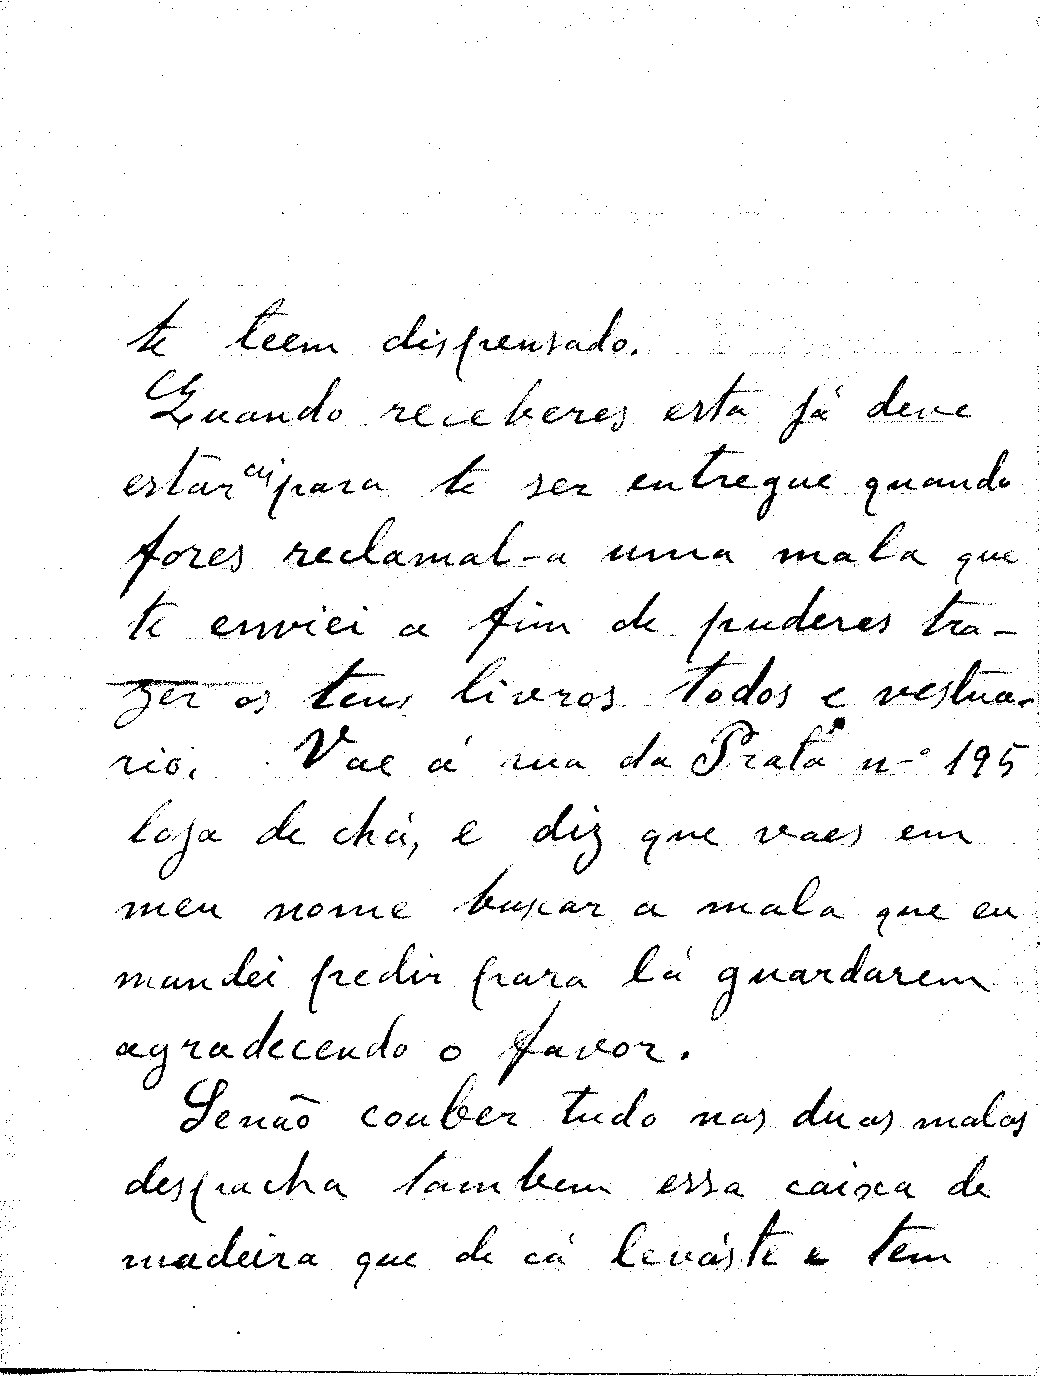 te teem dispensado.
Quando receberes esta já deve
estar aí para te ser entregue quando
fores reclamal-a uma mala que
te enviei a fim de puderes tra-
zer os teus livros todos e vestua-
rio. Vae á rua da Prata nº 195
loja de chá, e diz que vaes em
meu nome buscar a mala que eu
mandei pedir para lá guardarem
agradecendo o favor.
Senão couber tudo nas duas malas
despacha tambem essa caixa de
madeira que de cá leváste e tem